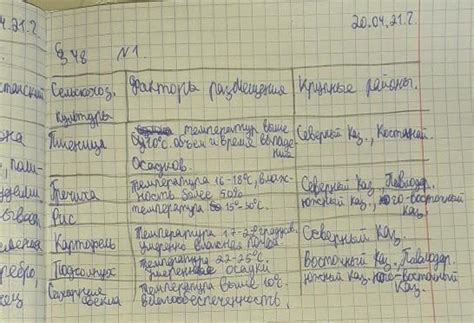 4.21.г.
20.04.21.г.
§48 №1.
Сельскохоз. культуры
Факторы размещения
Крупные районы.
Пшеница
температур выше
10°С. Объем и время выпаде
ний
осадков.
Северный Каз., Костанай.
Гречиха
Температура 16-18°С, влаж-
ность более 50%
Северный Каз., Павлодар.
Рис
температура 15°-30°С.
Южный Каз., юго-восточный
Каз.
Картофель
Температура 17-22 градусов,
умеренно влажная почва.
Северный Каз.
Подсолнух
Температура 22-25°С.
умеренные осадки
Восточный Каз., Павлодар.
Сахарная свекла
Температура выше 10°С.
влагообеспеченность.
Южный Каз., юго-восточный
Каз.